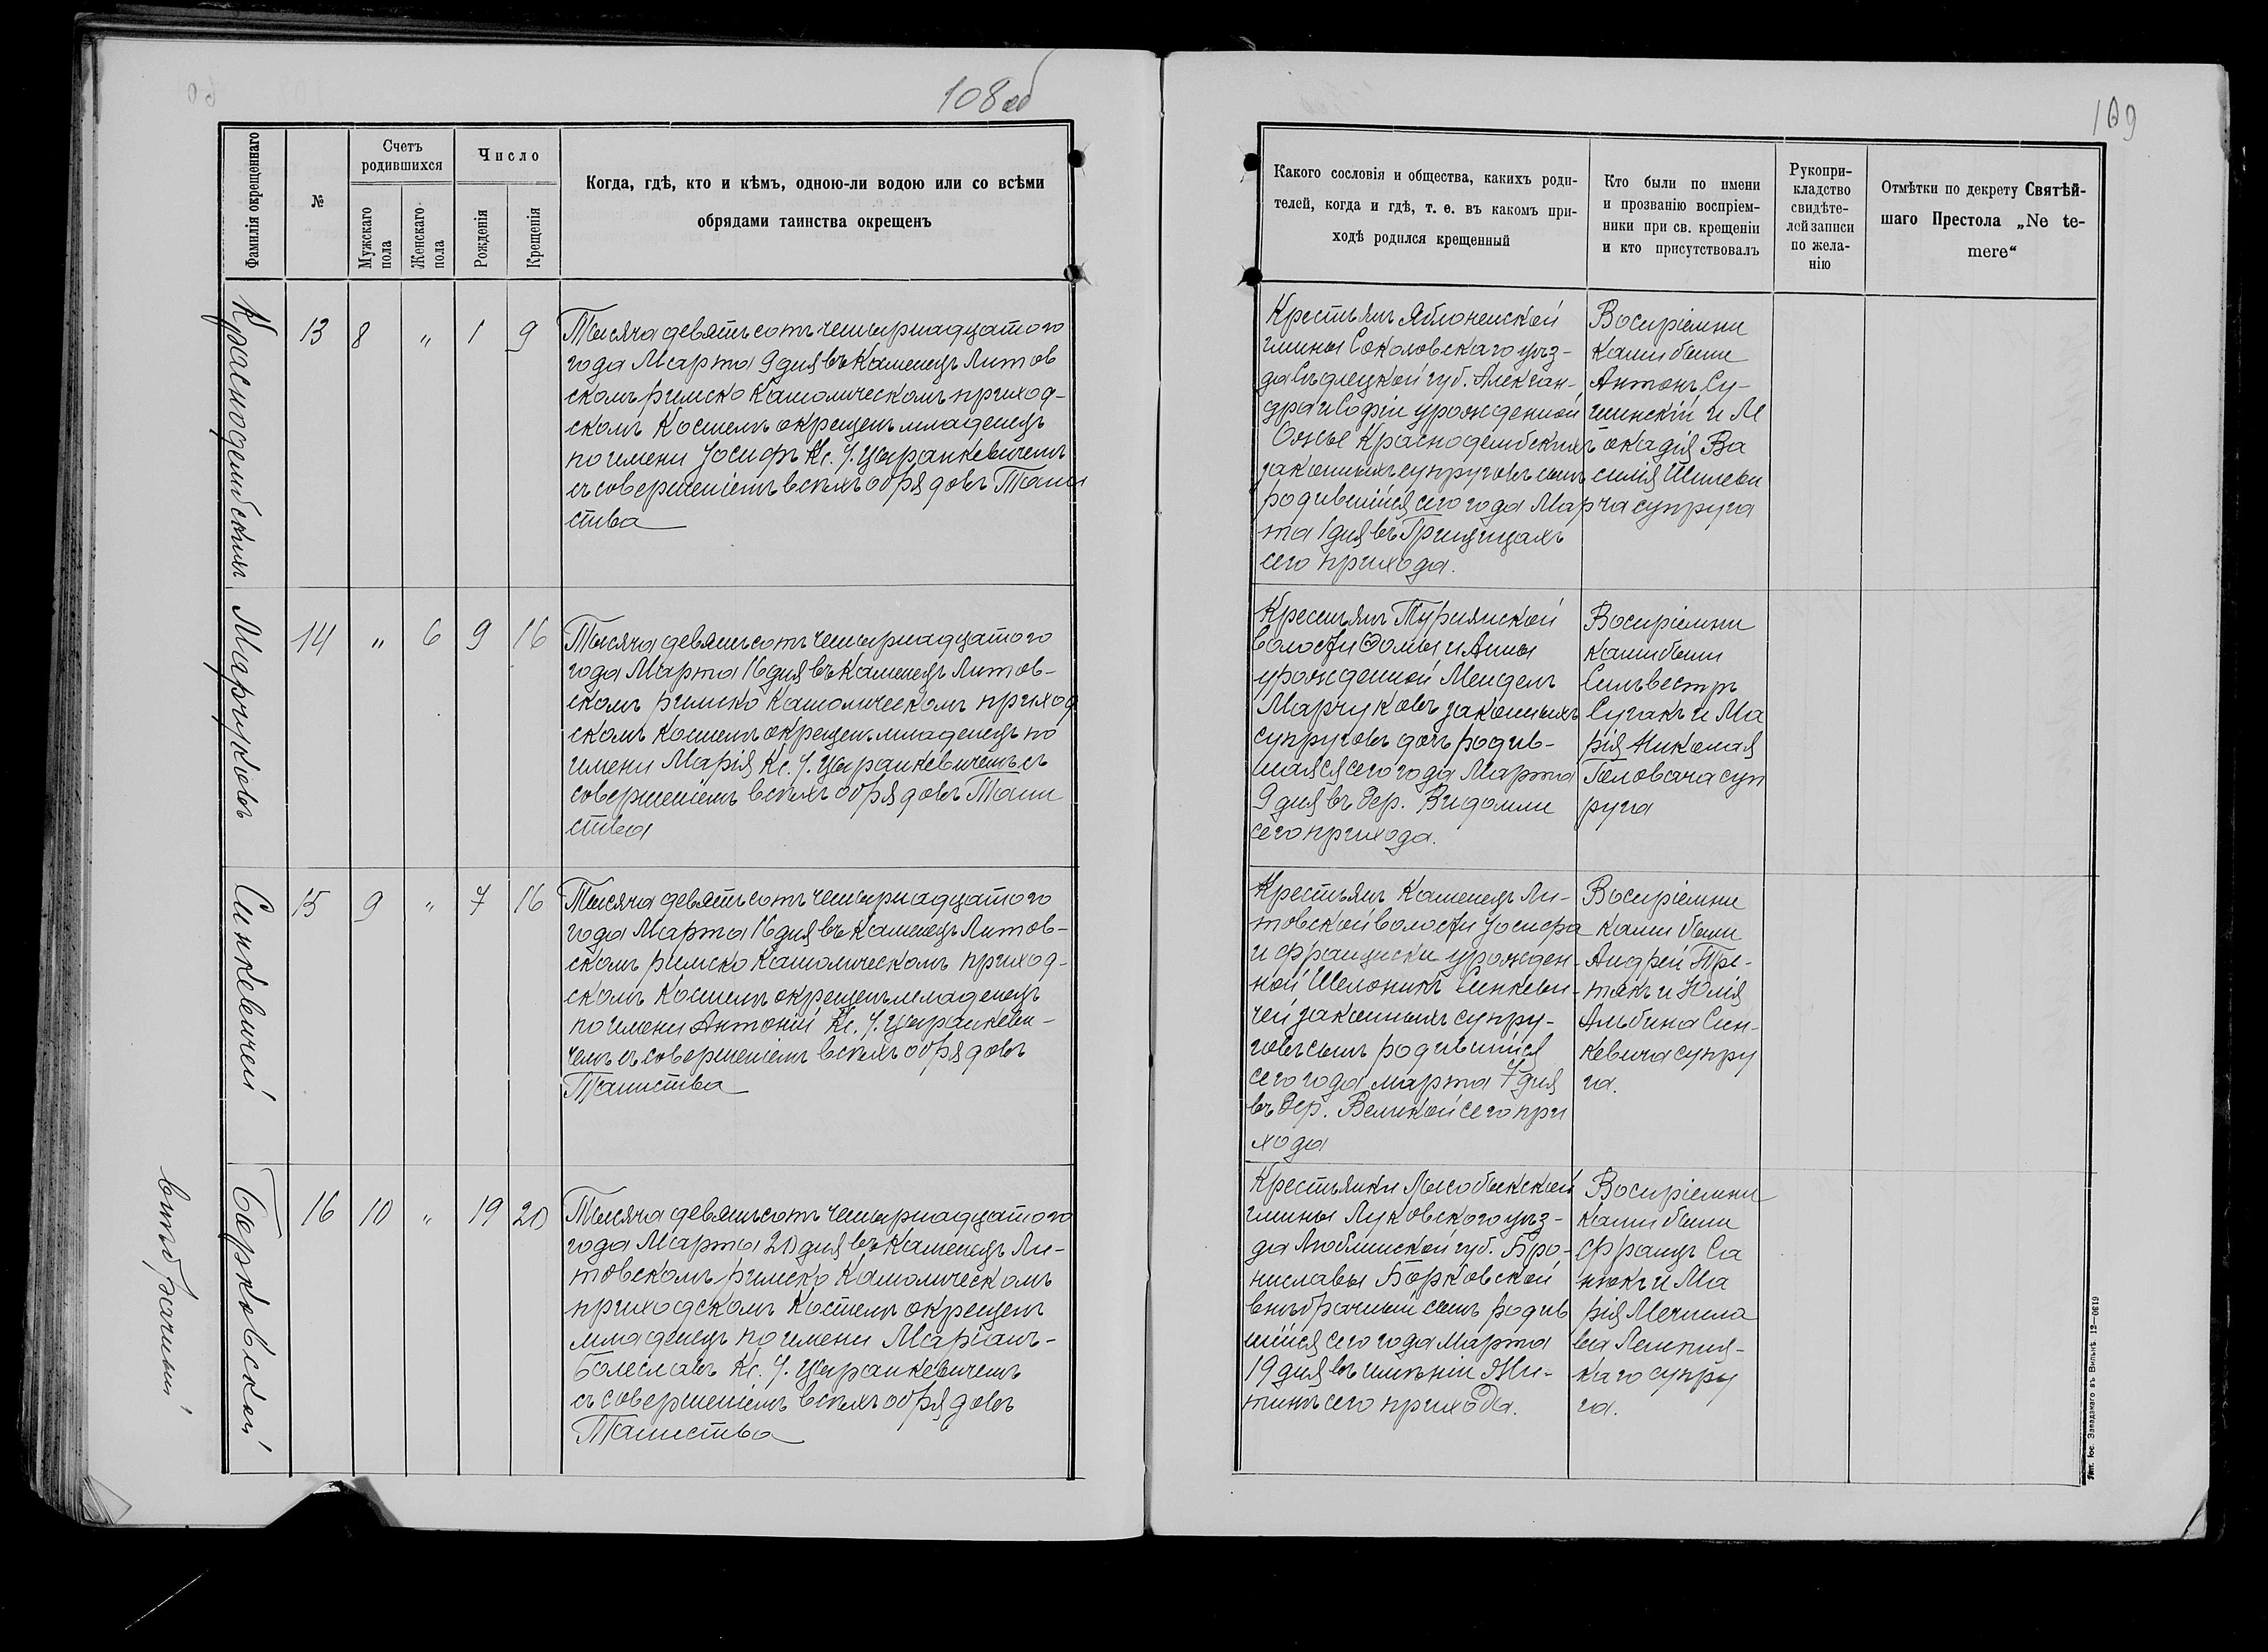 108 об
Фамилія окрещеннаго
№
Счетъ родившихся
Мужскаго пола
Женскаго пола
Число
Рожденія
Крещенія
Когда, гдѣ, кто и кѣмъ, одною-ли водою или со всѣми
обрядами таинства окрещенъ
Краснодембскихъ
13 8 „ 1 9
Тысяча девятьсотъ четырнадцатого
года Марта 9 дня въ Каменецъ Литов
скомъ римско Католическомъ приход-
скомъ Костелѣ окрещенъ младенецъ
по имени Іосифъ Кс. І. Цыранкевичемъ
съ совершеніемъ всѣхъ обрядовъ Таин
ства
Марчуковъ
14 „ 6 9 16
Тысяча девятьсотъ четырнадцатого
года Марта 16 дня въ Каменецъ Литов-
скомъ римско Католическомъ приход
скомъ Костелѣ окрещенъ младенецъ по
имени Марія Кс. І. Цыранкевичемъ съ
совершеніемъ всѣхъ обрядовъ Таин
ства
Синкевичей
15 9 „ 7 16
Тысяча девятьсотъ четырнадцатого
года Марта 16 дня въ Каменецъ Литов-
скомъ римско Католическомъ приход-
скомъ Костелѣ окрещенъ младенецъ
по имени Антоній Кс. І. Цыранкеви-
чемъ съ совершеніемъ всѣхъ обрядовъ
Таинства
Борковской
внѣбрачный
16 10 „ 19 20
Тысяча девятьсотъ четырнадцатого
года Марта 20 дня въ Каменецъ Ли-
товскомъ римско Католическомъ
приходскомъ Костелѣ окрещенъ
младенецъ по имени Маріанъ-
Болеславъ Кс. І. Цыранкевичемъ
съ совершеніемъ всѣхъ обрядовъ
Таинства
109
Какого сословія и общества, какихъ роди-
телей, когда и гдѣ, т. е. въ какомъ при-
ходѣ родился крещенный
Кто были по имени
и прозванію воспріем-
ники при св. крещеніи
и кто присутствовалъ
Рукопри-
кладство
свидѣте-
лей записи
по жела-
нію
Отмѣтки по декрету Святѣй-
шаго Престола „Ne te-
mere“
Крестьянъ Яблоненской
гмины Соколовскаго уѣз-
да Сѣдлецкой губ. Алексан-
дра и Софіи урожденной
Ожсье Краснодембскихъ
законныхъ супруговъ сынъ
родившійся сего года Мар
та 1 дня въ Грицицахъ
сего прихода.
Воспріемни
ками были
Антонъ Су-
шинскій и Л
окадія Ва
силія Шилеви
ча супруга
Крестьянъ Турнянской
волости Ѳомы и Анны
урожденной Мендель
Марчуковъ законныхъ
супруговъ дочь родив-
шаяся сего года Марта
9 дня въ дер. Видомли
сего прихода.
Воспріемни
ками были
Сильвестръ
Сугакъ и Ма
рія Николая
Головача суп
руга
Крестьянъ Каменецъ Ли-
товской волости Іосифа
и Франциски урожден-
ной Шелоникъ Синкеви-
чей законныхъ супру-
говъ сынъ родившійся
сего года марта 7 дня
въ дер. Великой сего при
хода
Воспріемни
ками были
Андрей Тре-
тякъ и Юлія
Альбина Син-
кевича супру
га.
Крестьянки Лысобыкской
гмины Луковского уѣз-
да Люблинской губ. Бро-
ниславы Борковской
внѣбрачный сынъ родив
шійся сего года Марта
19 дня въ имѣніи Жи-
тинѣ сего прихода.
Воспріемни
ками были
Францъ Са
нюкъ и Ма
рія Мечисла
ва
каго супру
га.
Тип. Іос. Завадзкаго въ Вильнѣ. 12—0619